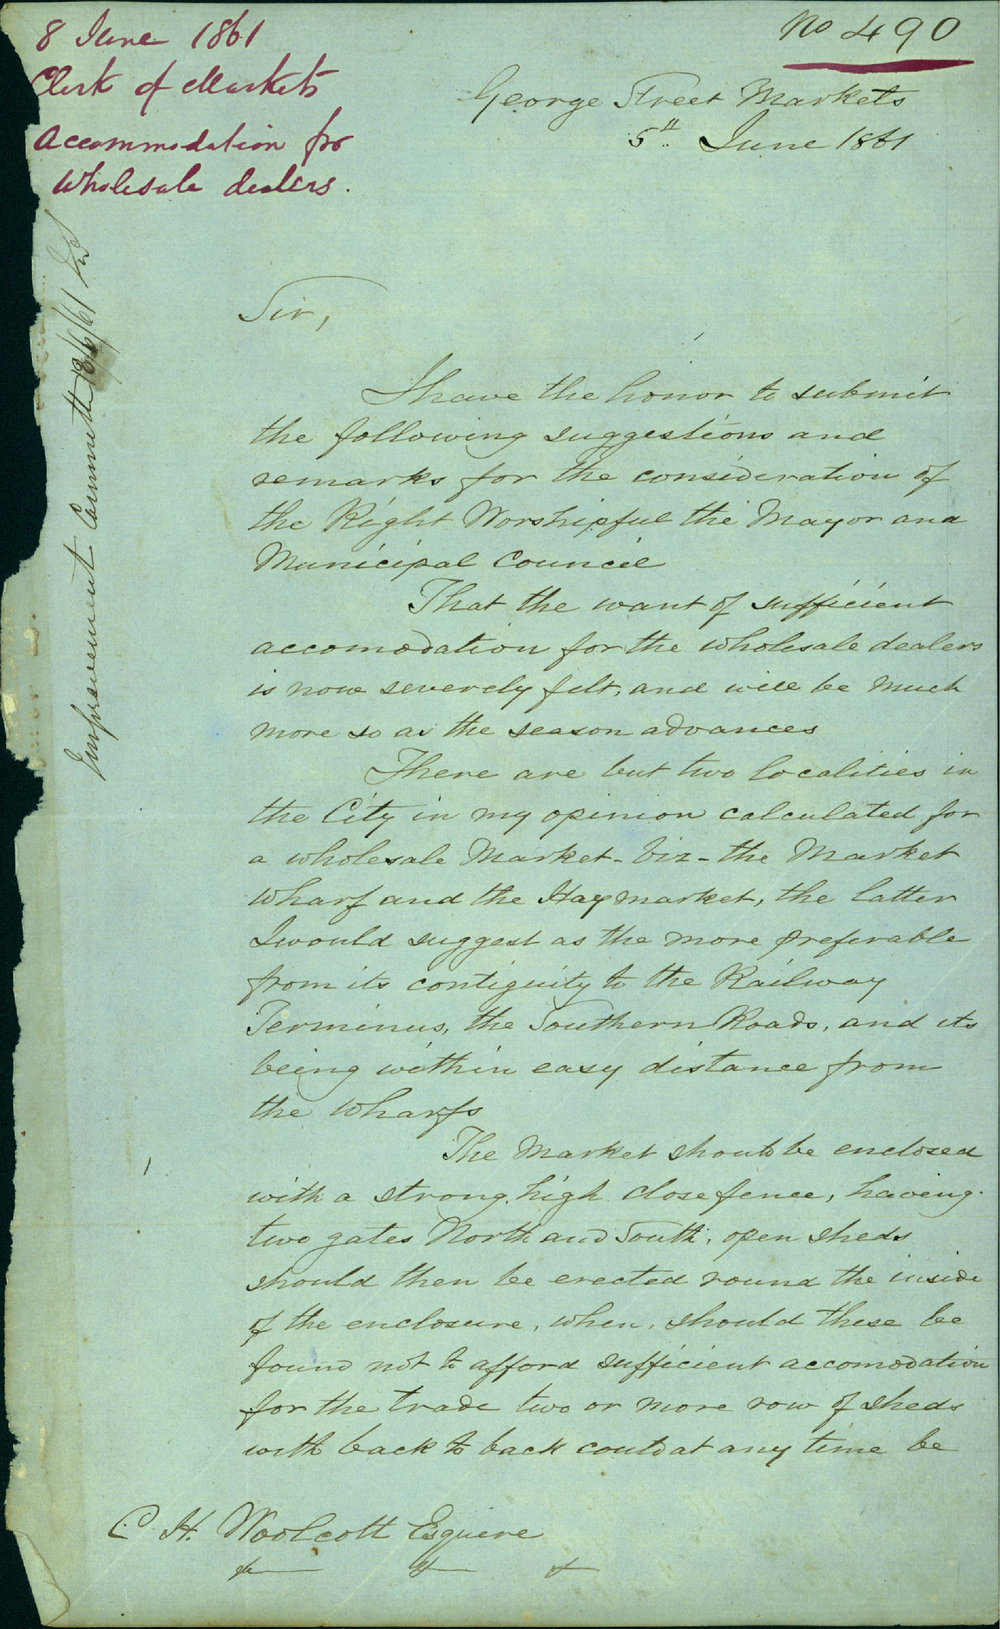 8 June 1861
Clerk of Markets
Accommodation for
Wholesale dealers.
No 490
George Street Markets
5th June 1861
Improvement Committee 18/6/61
Sir,
I have the honor to submit
the following suggestions and
remarks for the consideration of
the Right Worshipful the Mayor and
Municipal Council
That the want of sufficient
accomodation for the wholesale dealers
is now severely felt, and will be much
more so as the season advances
There are but two localities in
the City in my opinion calculated for
a wholesale Market - viz - the Market
Wharf and the Haymarket, the latter
I would suggest as the more preferable
from its contiguity to the Railway
Terminus, the Southern Roads, and its
being within easy distance from
the Wharfs
The Market should be enclosed
with a strong, high close fence, having
two gates North and South, open sheds
should then be erected round the inside
of the enclosure, when, should these be
found not to afford sufficient accomodation
for the trade two or more row of sheds
with back to back could at any time be
C H. Woolcott Esquire